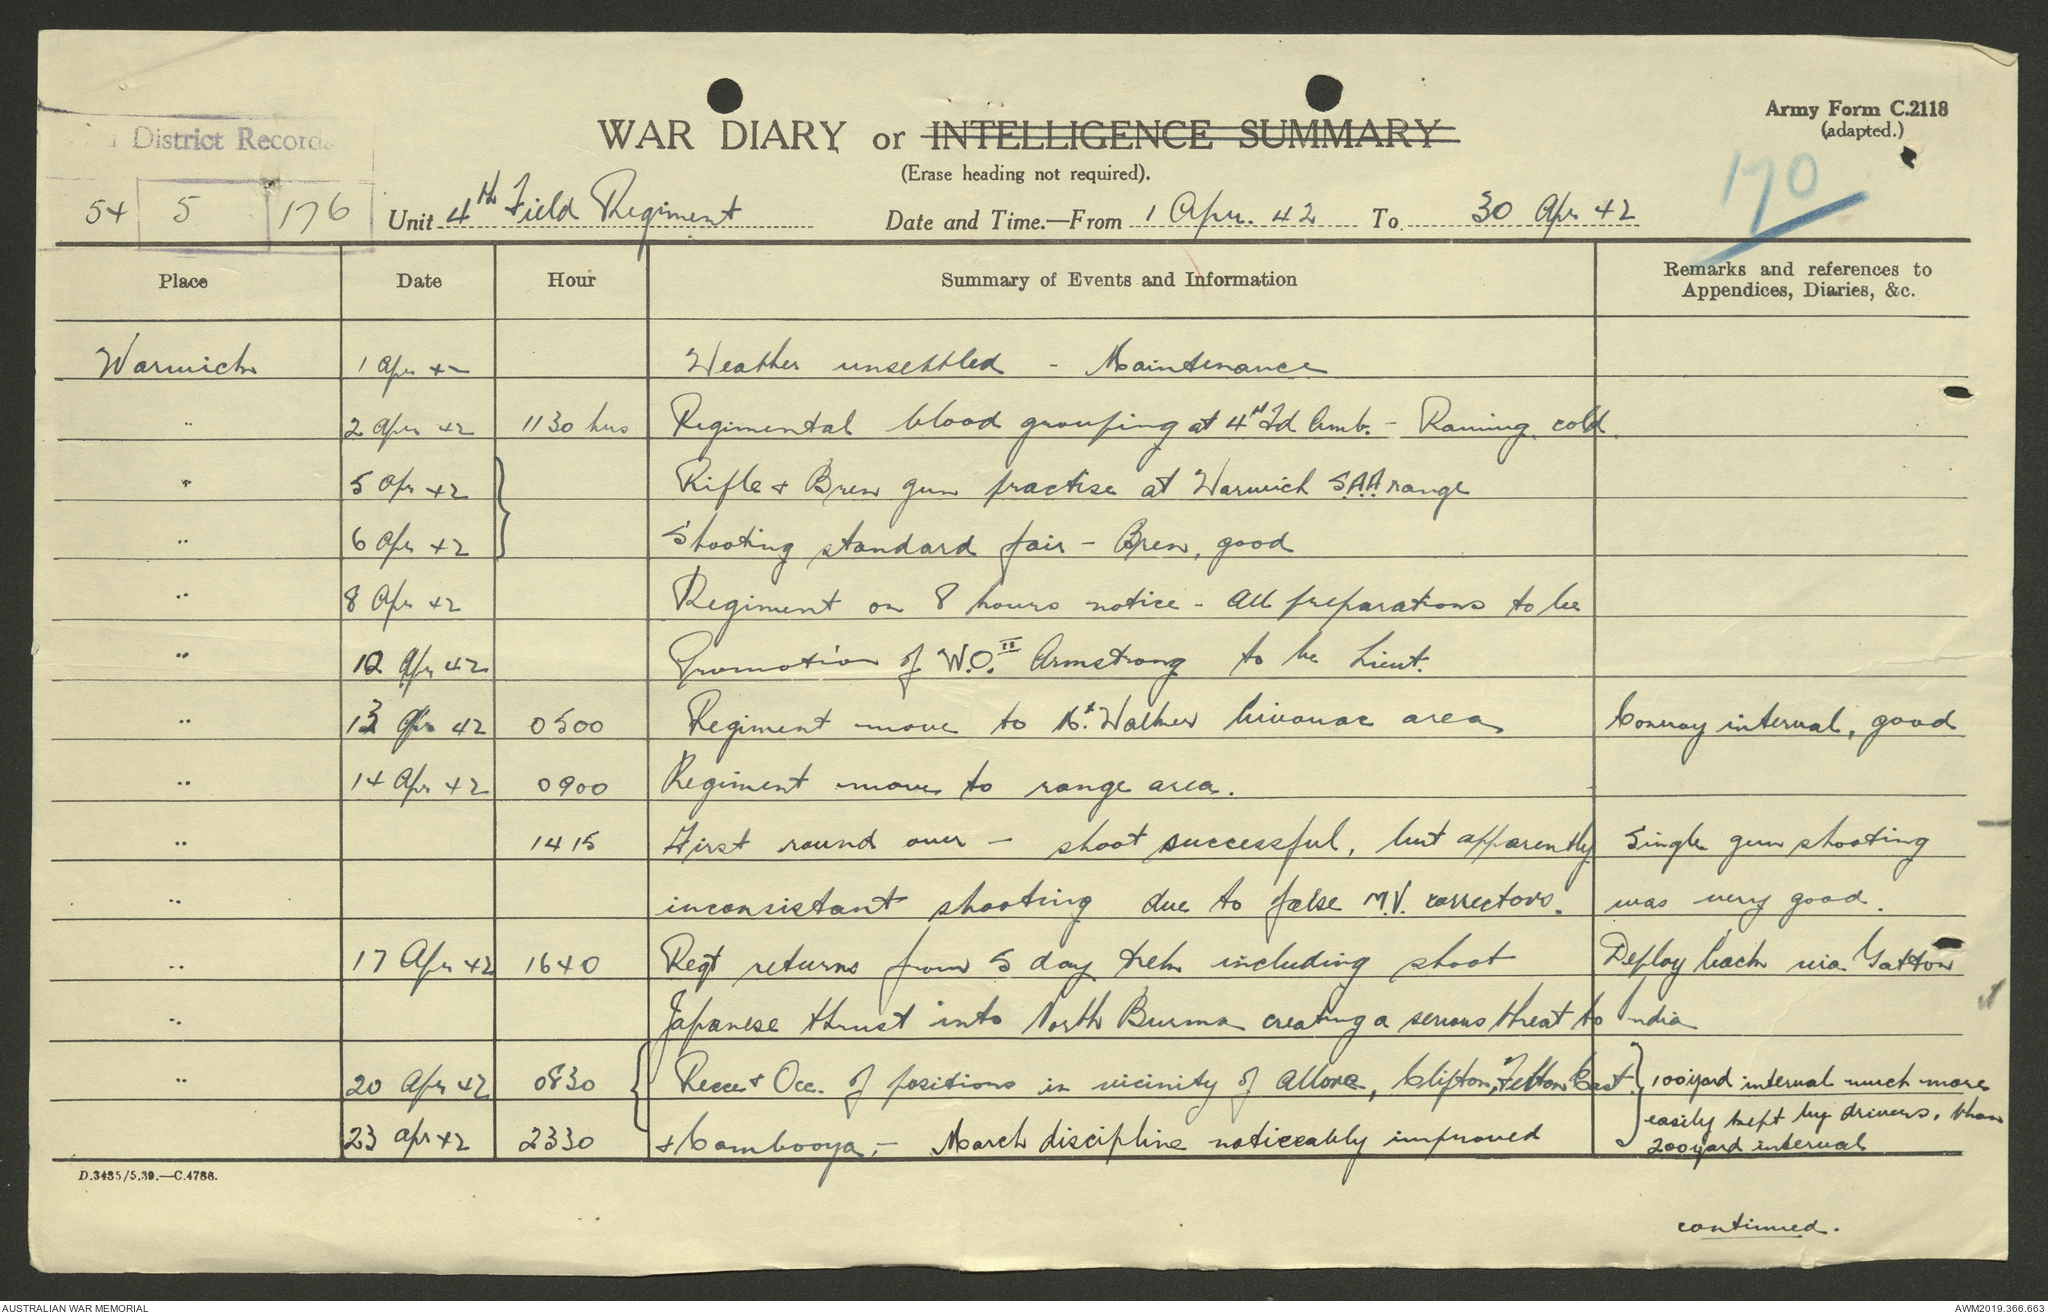 Army Form C.2118
(adapted.)
District Records
WAR DIARY or INTELLIGENCE SUMMARY
(Erase heading not required).
170
54 5 176
Unit 4th Field Regiment Date and Time.—From 1 Apr. 42 To 30 Apr 42
Place Date Hour Summary of Events and Information Remarks and references to
Appendices, Diaries, &c.
Warwick 1 Apr 42 Weather unsettled - Maintenance
" 2 Apr 42 1130 hrs Regimental blood grouping at 4th Fd Amb. - Raining, cold.
" 5 Apr 42 Rifle & Bren gun practise at Warwick S.A.A range
" 6 Apr 42 Shooting standard fair - Bren, good
" 8 Apr 42 Regiment on 8 hours notice - All preparations to be
" 12 Apr 42 Promotion of W.O.II Armstrong to be Lieut.
" 13 Apr 42 0500 Regiment move to Mt. Walker bivouac area Convoy interval, good
" 14 Apr 42 0900 Regiment move to range area.
" 1415 First round over - shoot successful, but apparently Single gun shooting
" inconsistant shooting due to false M.V. correctors. was very good.
" 17 Apr 42 1640 Regt returns from 5 day trek including shoot Deploy back via Gatton
" Japanese thrust into North Burma creating a serious threat to India
" 20 Apr 42 0830 Recce & Occ. of positions in vicinity of Allora, Clifton, Felton East 100 yard interval much more
easily kept by drivers, than
23 Apr 42 2330 & Cambooya, - March discipline noticeably improved 200 yard interval
D.3485/5.39.—C.4788.
continued.
AUSTRALIAN WAR MEMORIAL AWM2019.366.663